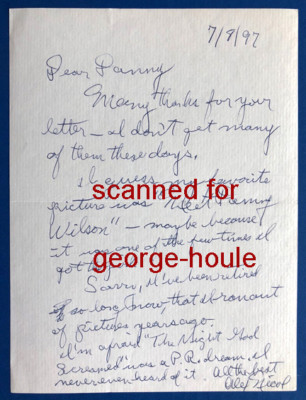 7/8/97
Dear Danny
Many thanks for your
letter – I don't get many
of them these days.
I guess my favorite
scanned for
picture was "Meet Danny
Wilson" – maybe because
it was one of the few times I
got
george-houle
Sorry, I've been retired
so long now, that I ran out
of pictures years ago.
I'm afraid "The Night God
Screamed" was a P.R. dream. I
never even heard of it. All the best
Alex Nicol